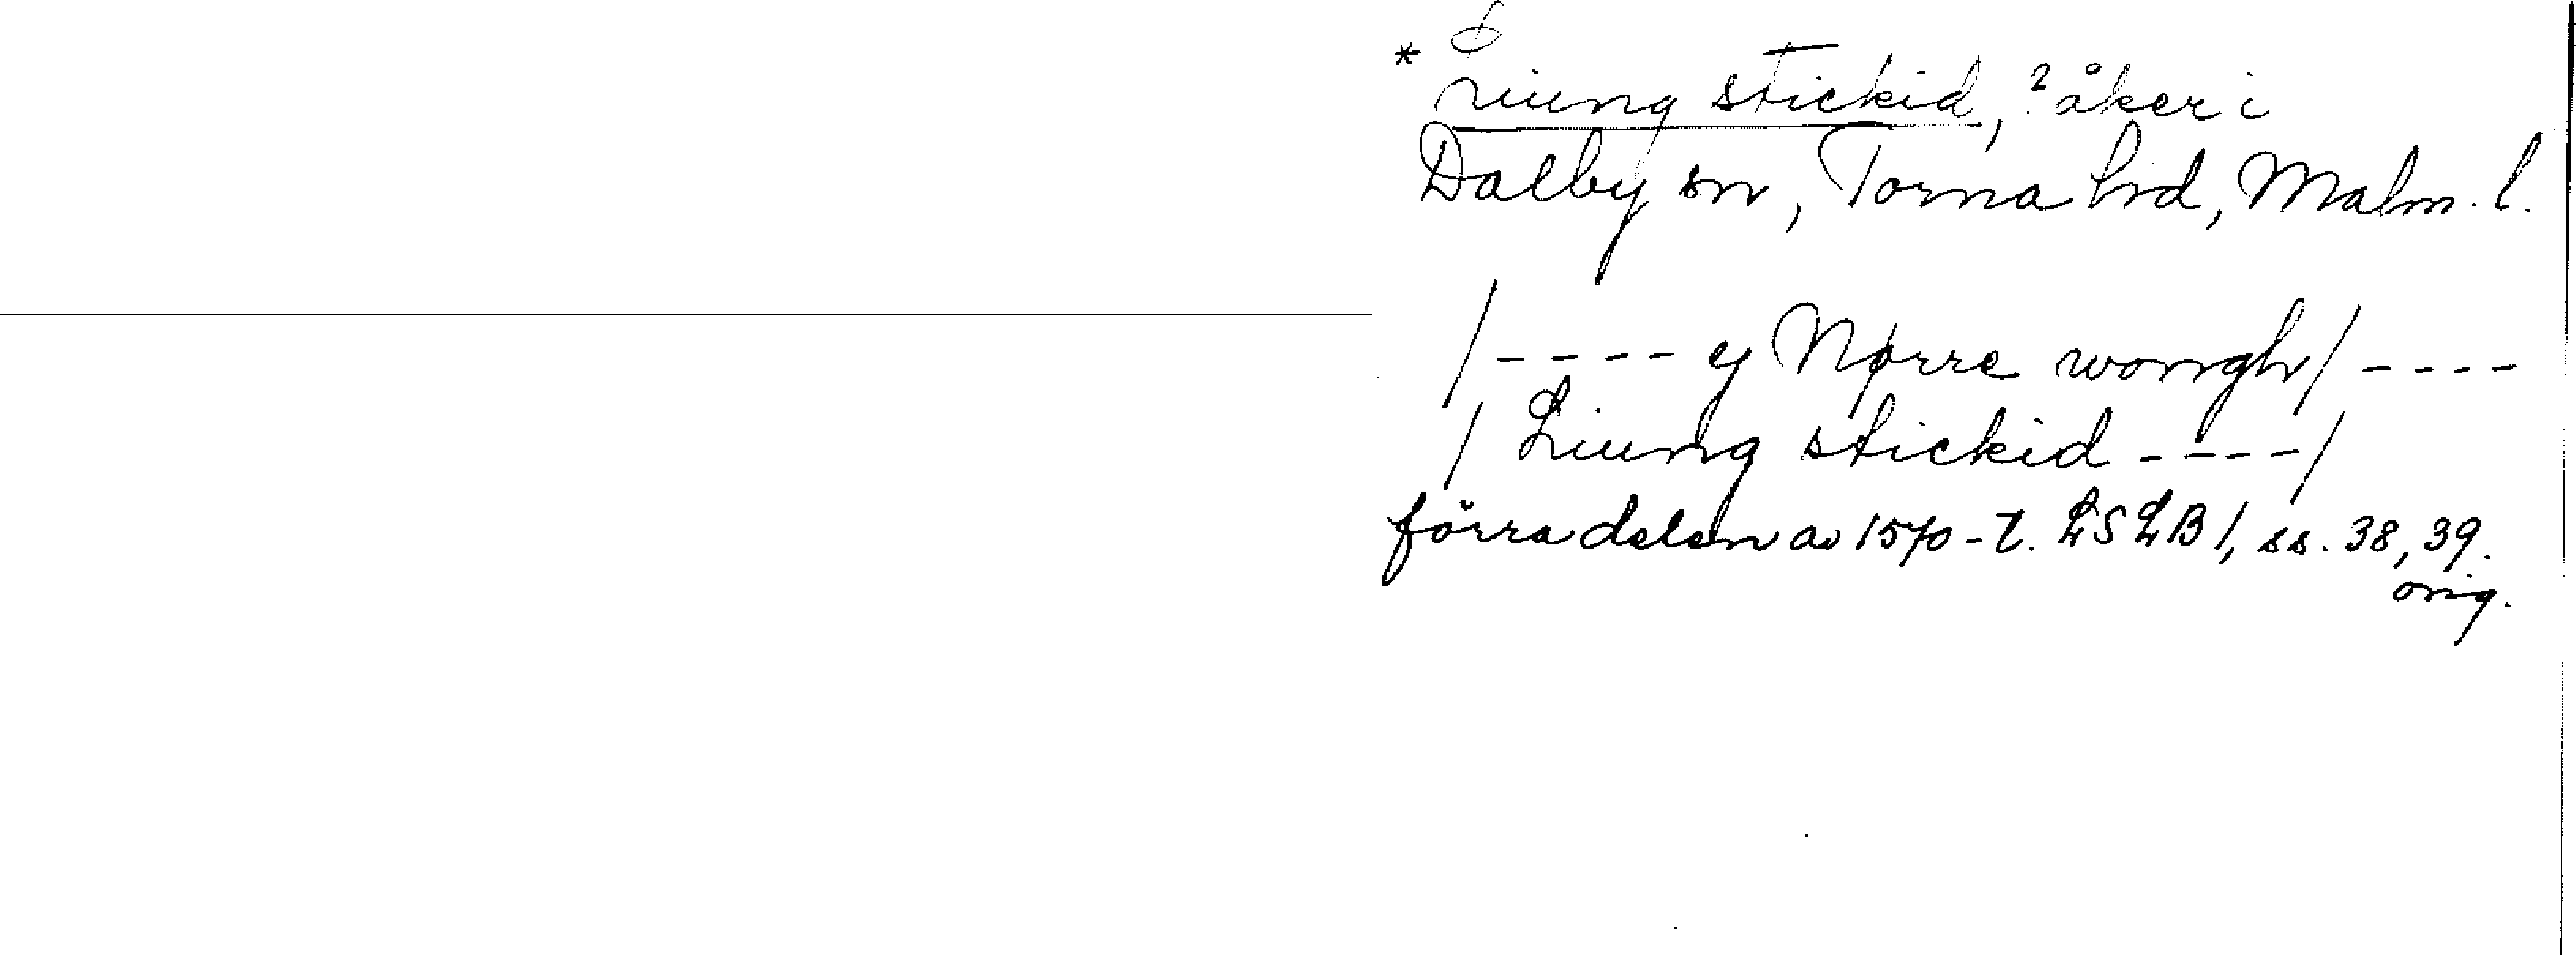 * Liung stickid, ? åker i
Dalby sn, Torna hd, Malm. l.
/---- y Nørre wongh/ ----
/ Liung stickid ----/
förra delen av 1570-t. LSLB 1, ss. 38, 39.
orig.